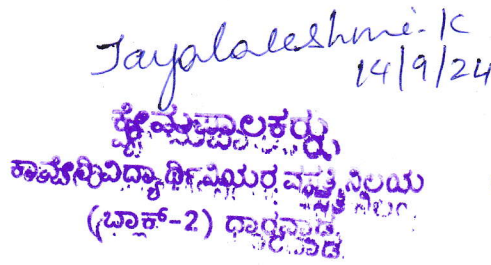 Jayalaleshmi.K
14/9/24
ಕ್ಷೇಮಪಾಲಕರು
ಕಾವೇರಿ ವಿದ್ಯಾರ್ಥಿನಿಯರ ವಸತಿ ನಿಲಯ
(ಬ್ಲಾಕ್-2) ಧಾರವಾಡ